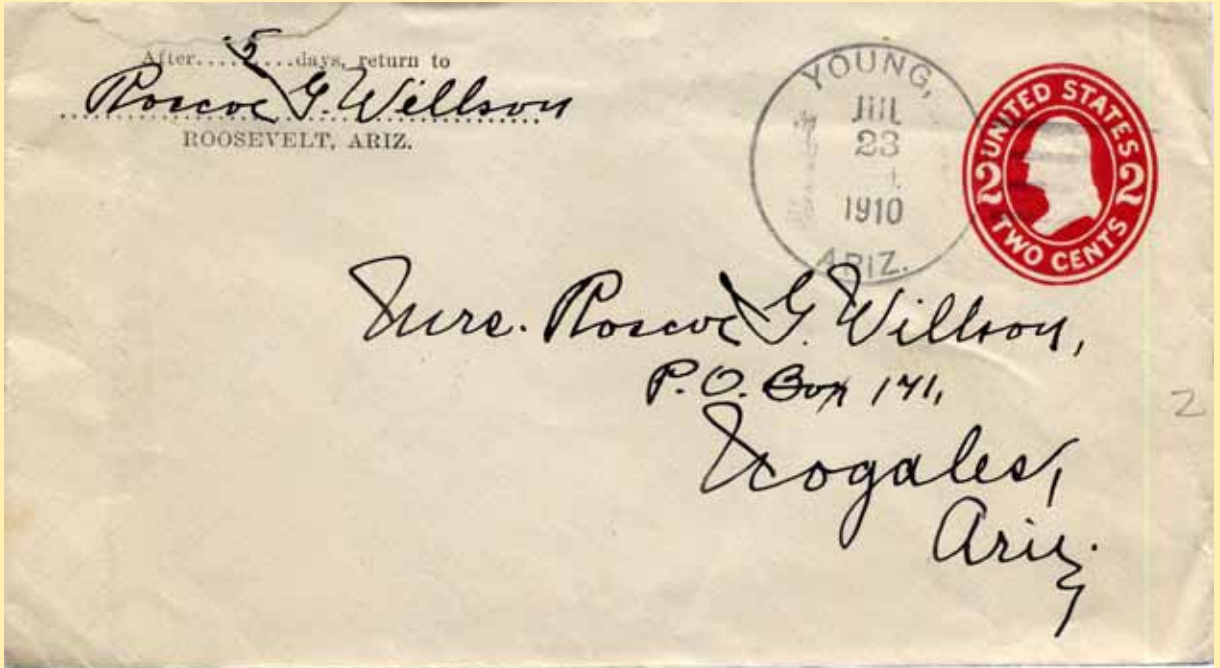 After....5....days, return to
Roscoe G. Willson
ROOSEVELT, ARIZ.
YOUNG,
JUL
23
1910
ARIZ.
UNITED STATES
2 2
TWO CENTS
Mrs. Roscoe G. Willson,
P.O. Box 171,
Nogales,
Ariz.
2